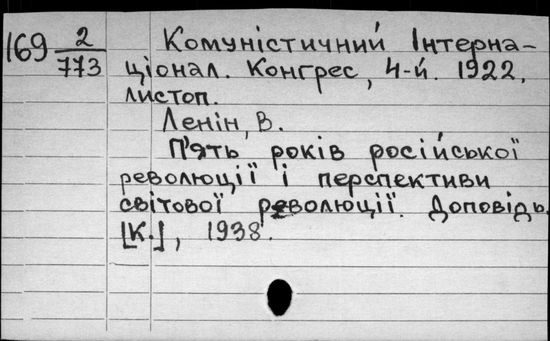 169 2/773 Комуністичний Інтерна-
ціонал. Конгрес, 4-й. 1922,
листоп.
Ленін, В.
П'ять років російської
революції і перспективи
світової революції. Доповідь.
[К.], 1938.